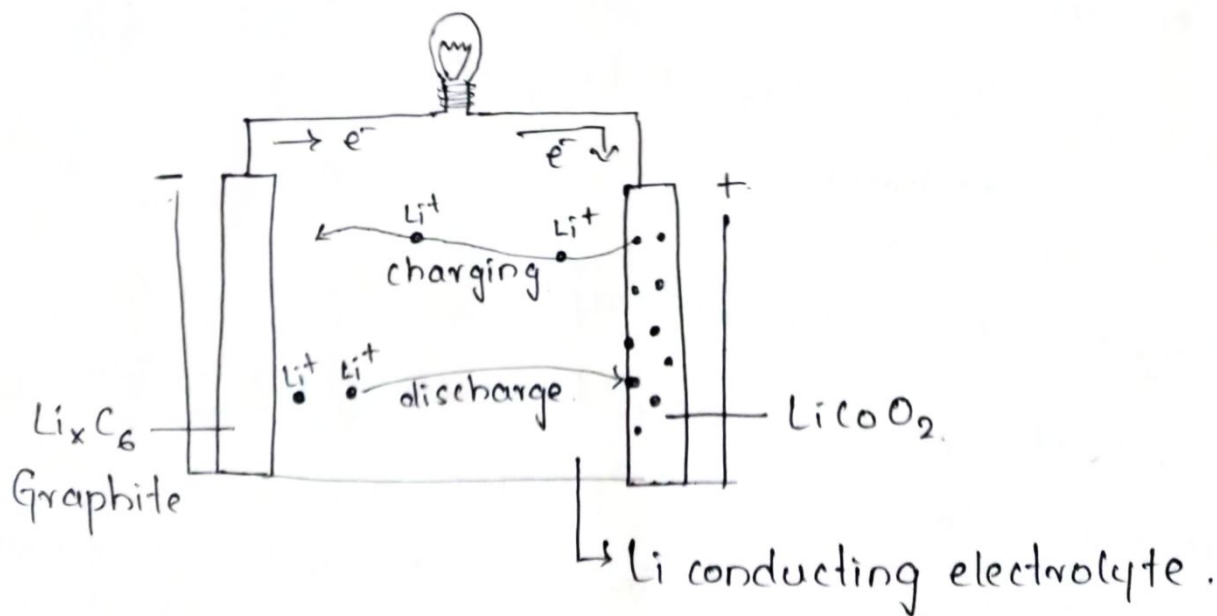 → e⁻
e⁻
−
+
Li⁺
Li⁺
charging
Li⁺ Li⁺
discharge.
LiₓC₆
Graphite
LiCoO₂.
Li conducting electrolyte.